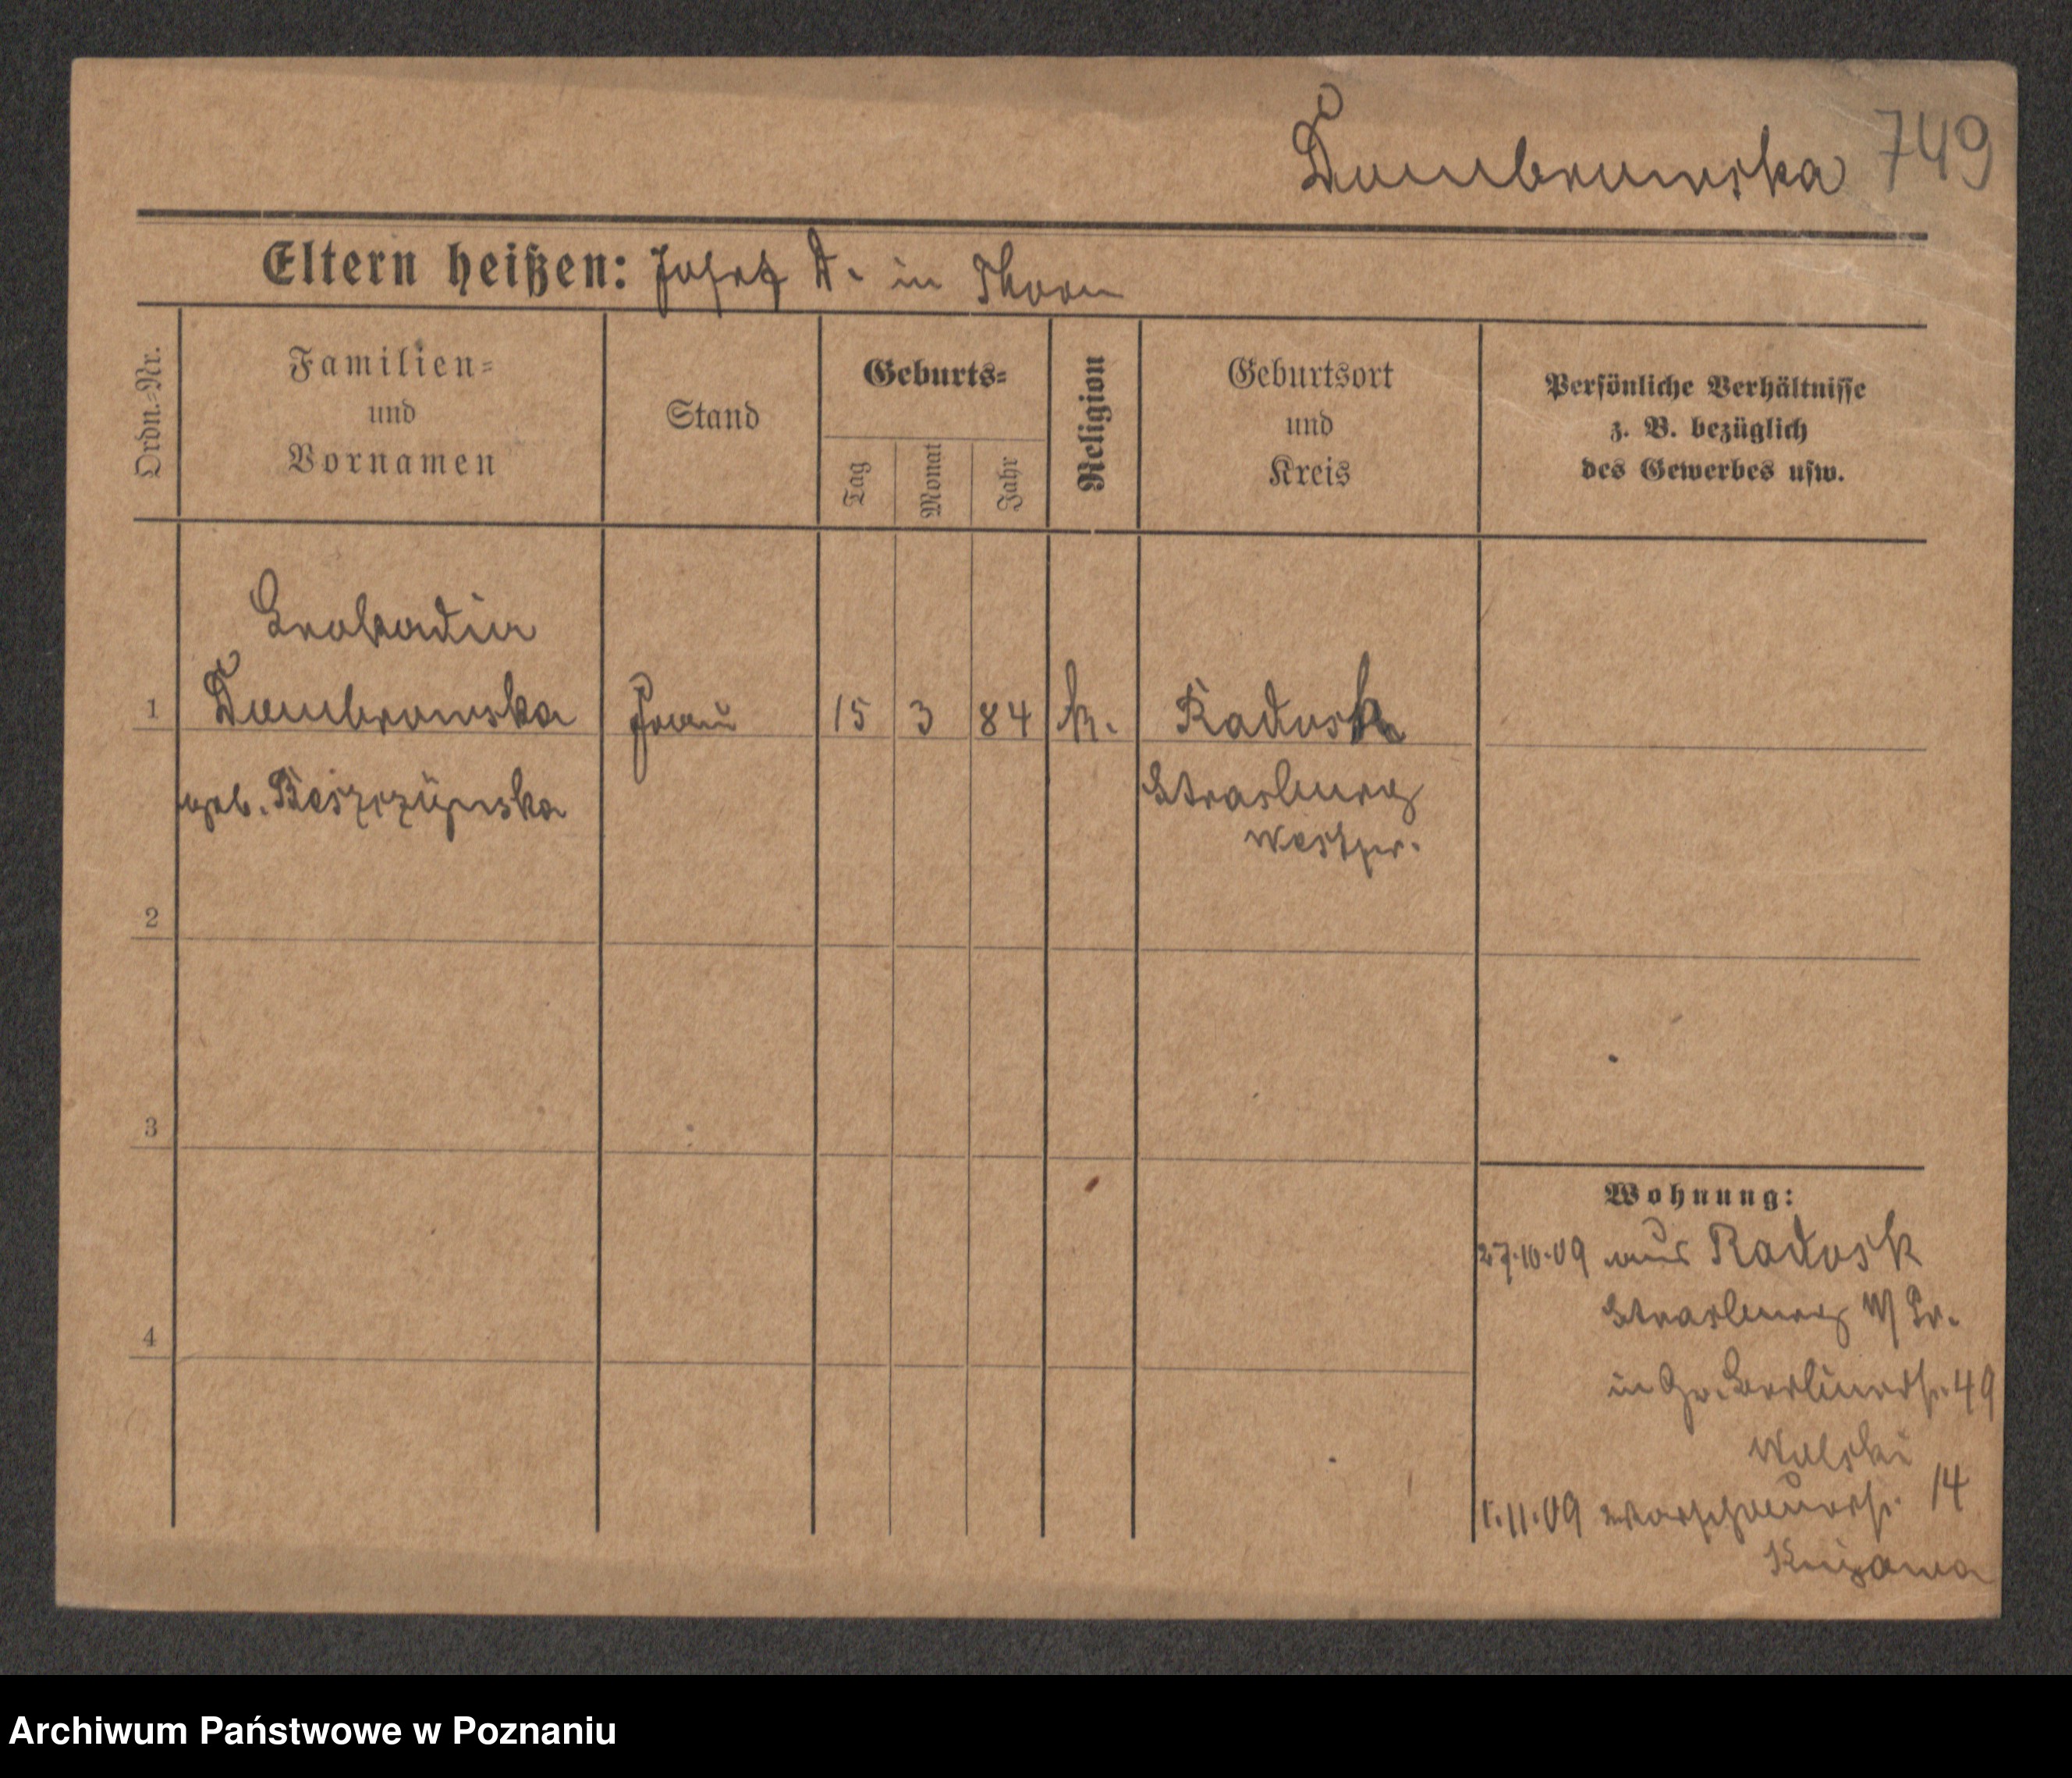 Dombrowska 749
Eltern heißen: Josef D. in Thorn
Ordn.-Nr.
Familien-
und
Vornamen
Stand
Geburts-
Tag
Monat
Jahr
Religion
Geburtsort
und
Kreis
Persönliche Verhältnisse
z. B. bezüglich
des Gewerbes usw.
Leokadia
1 Dombrowska Frau 15 3 84 k. Radosk
geb. Strasburg
Westpr.
2
3
4
Wohnung:
27.10.09 aus Radosk
Strasburg W/Pr.
in Gr. Berlinerstr. 49
Wolski
1.11.09 Warschauerstr. 14